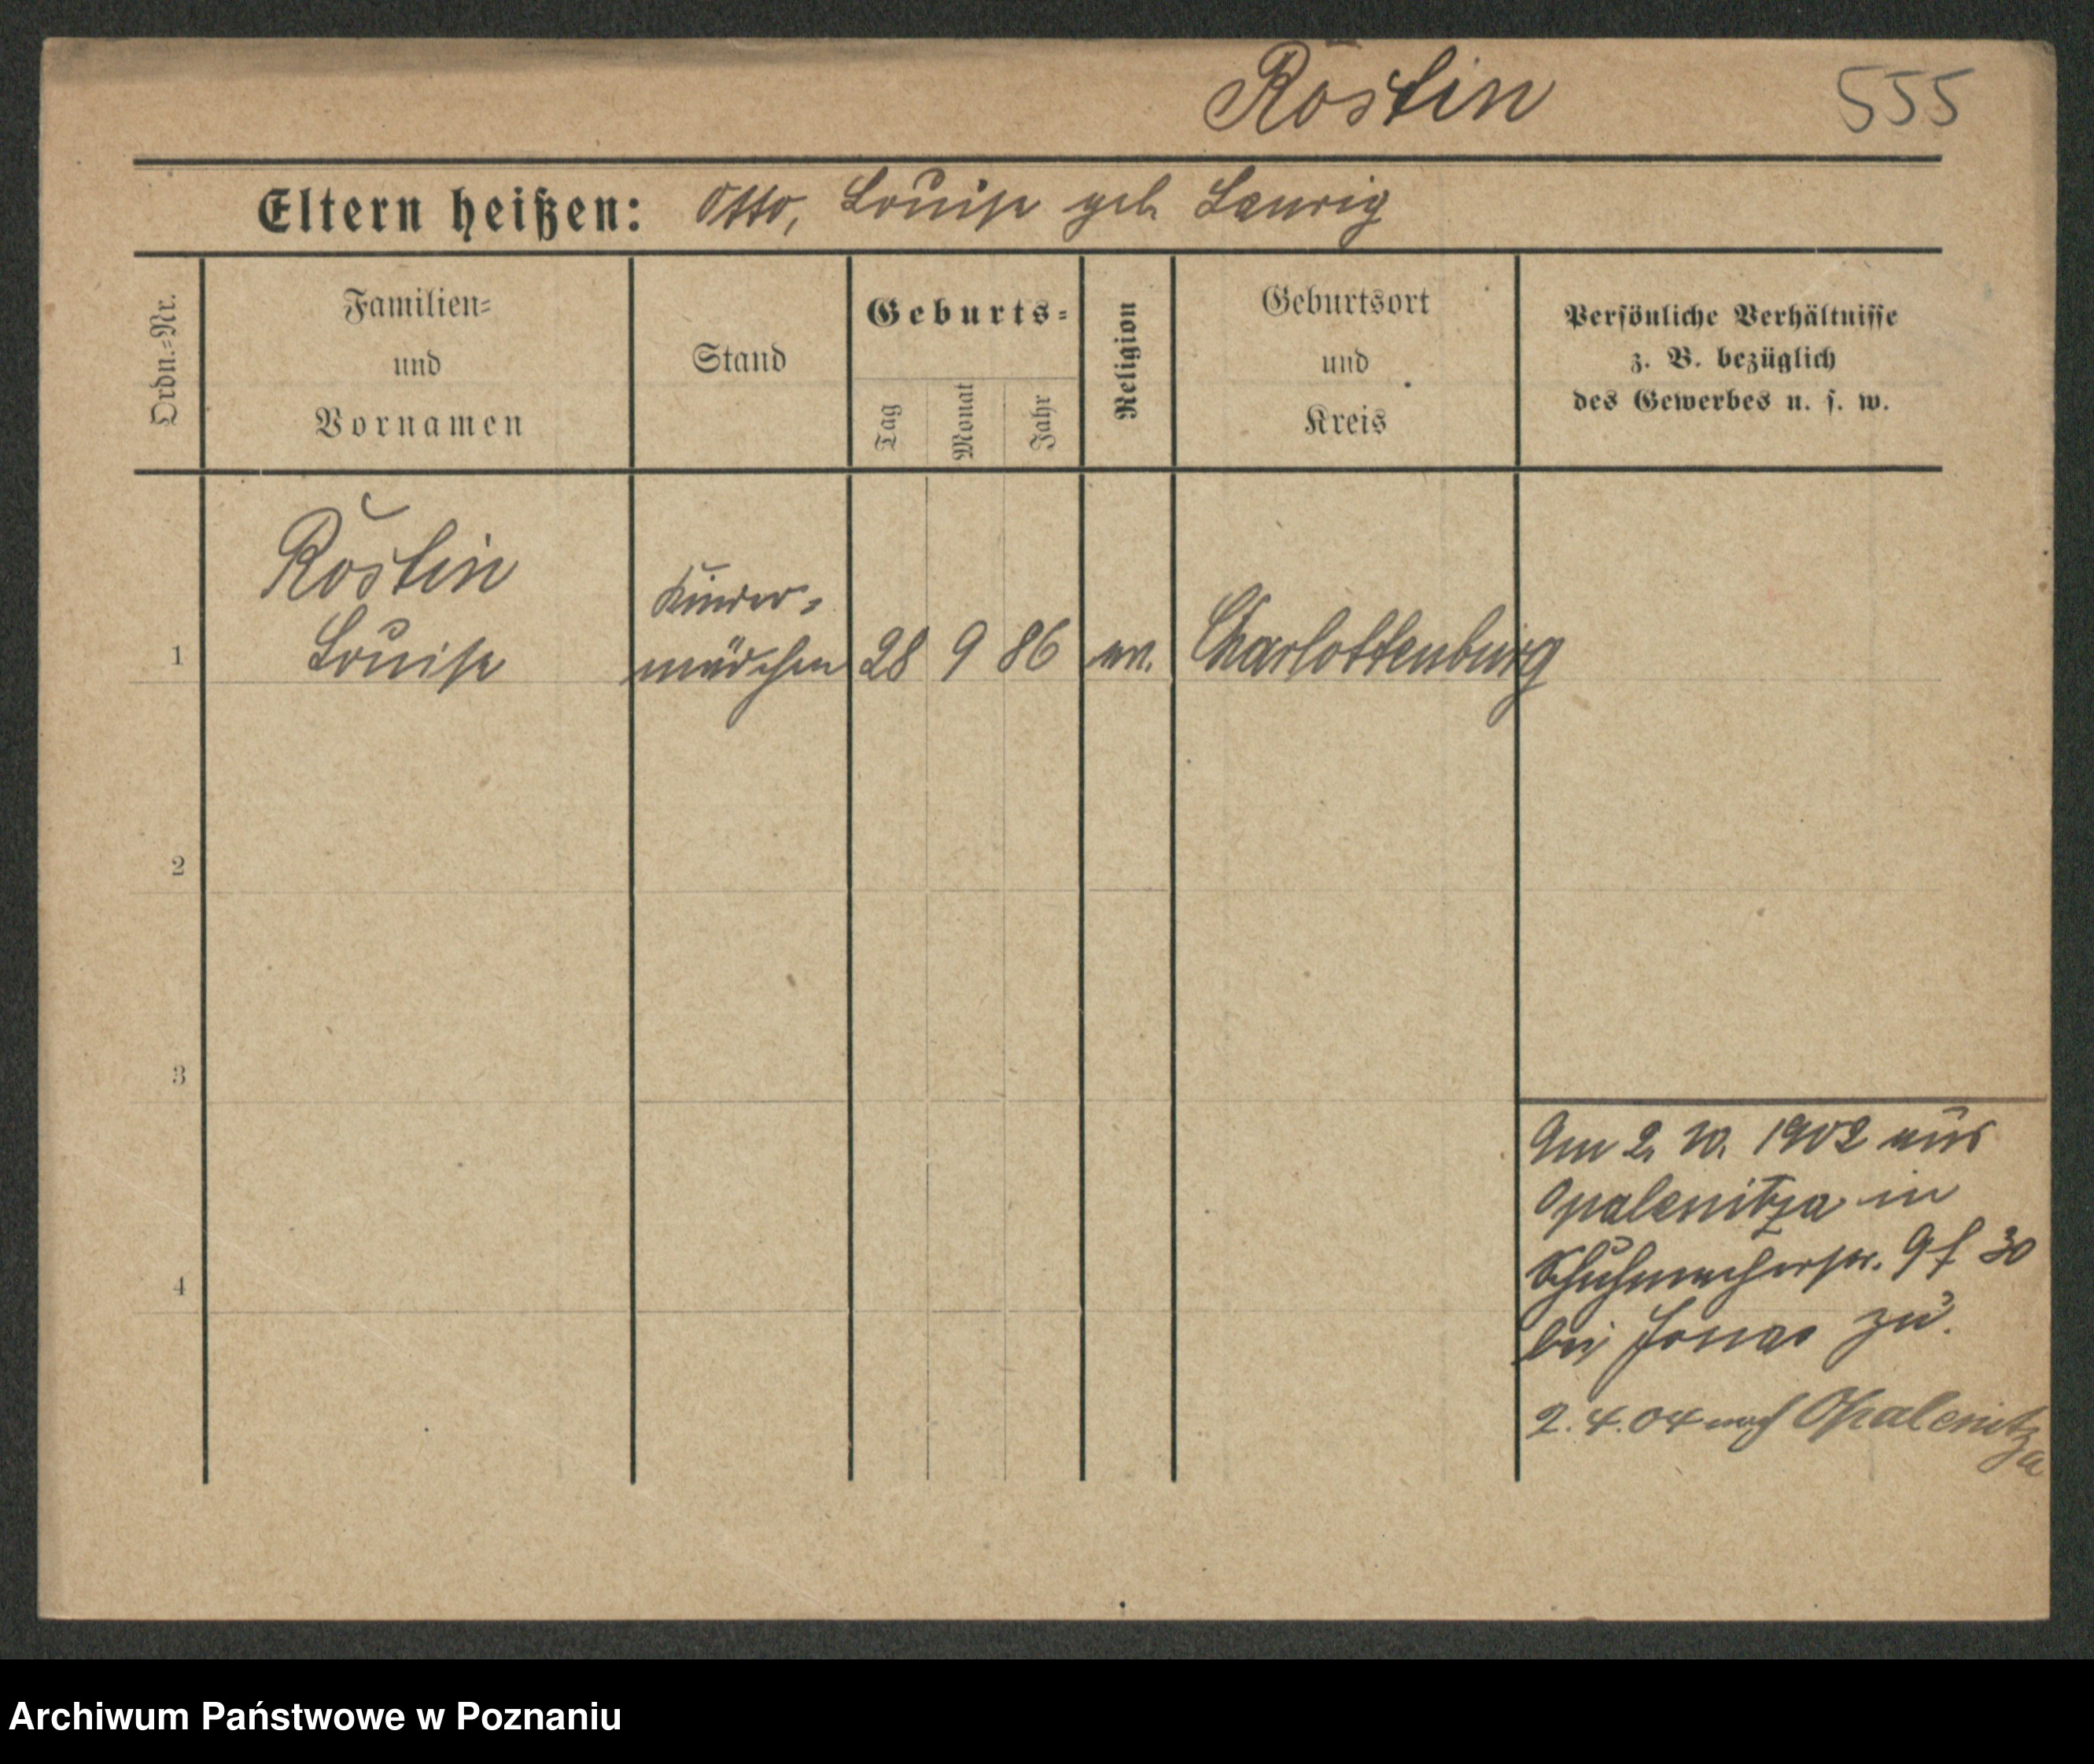 Röstin 555
Eltern heißen: Otto, Louise geb. Laurig
Ordn.-Nr.
Familien-
und
Vornamen
Stand
Geburts-
Tag
Monat
Jahr
Religion
Geburtsort
und
Kreis
Persönliche Verhältnisse
z. B. bezüglich
des Gewerbes u. s. w.
Röstin
Kinder-
1 Louise mädchen 28 9 86 ev. Charlottenburg
2
3
4
Am 2. 10. 1902 aus
Opalenitza in
Schuhmacherstr. 9 f 30
bei Jonas zu.
2. 4. 04 nach Opalenitza
Archiwum Państwowe w Poznaniu